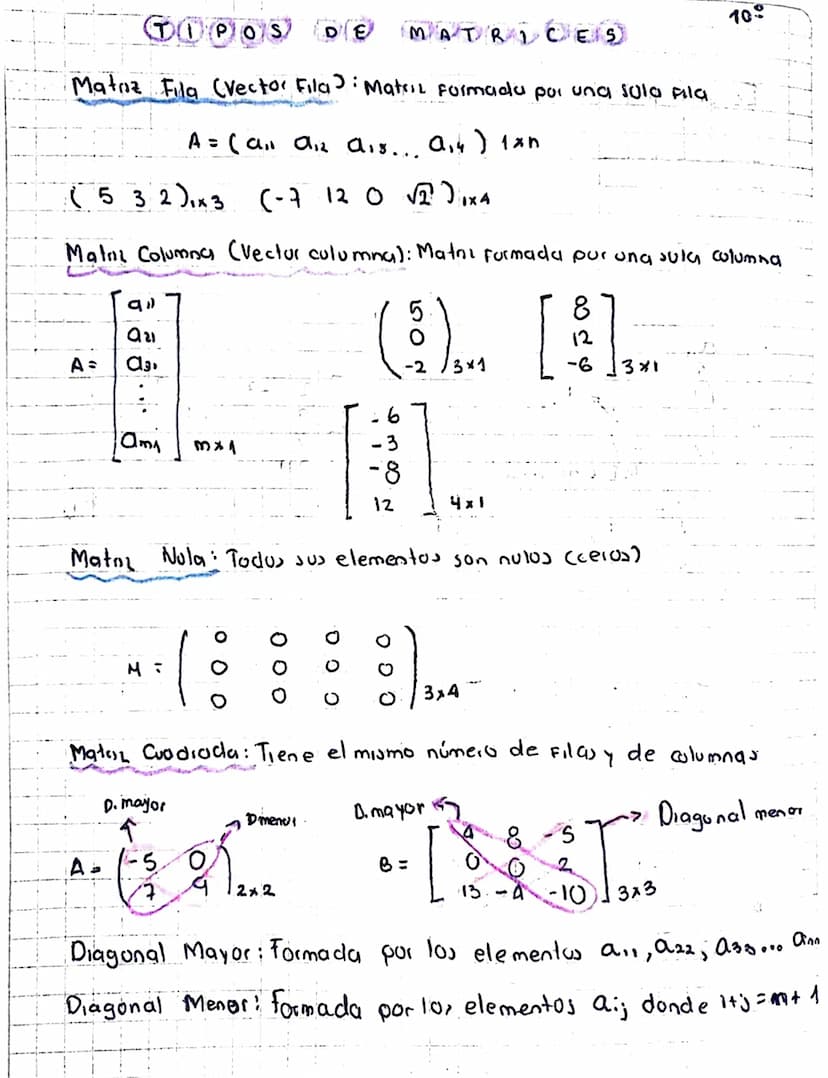 10º
TIPOS DE MATRICES
Matriz Fila (Vector Fila): Matriz Formada por una sola Fila
A = (a11 a12 a13... a14) 1xn
(5 3 2)1x3 (-7 12 0 √2)1x4
Matriz Columna (Vector columna): Matriz Formada por una sola columna
A = [a11
a21
a31
⋮
am1] mx1
(5
0
-2)3x1
[8
12
-6]3x1
[-6
-3
-8
12]4x1
Matriz Nula: Todos sus elementos son nulos (ceros)
M = (0 0 0 0
0 0 0 0
0 0 0 0)3x4
Matriz Cuadrada: Tiene el mismo número de Filas y de columnas
D. mayor
D menor
A = (-5 0
7 9)2x2
D. mayor
Diagonal menor
B = [4 8 -5
0 0 2
13 -4 -10]3x3
Diagonal Mayor: Formada por los elementos a11, a22, a33... ann
Diagonal Menor: Formada por los elementos aij donde i+j=n+1